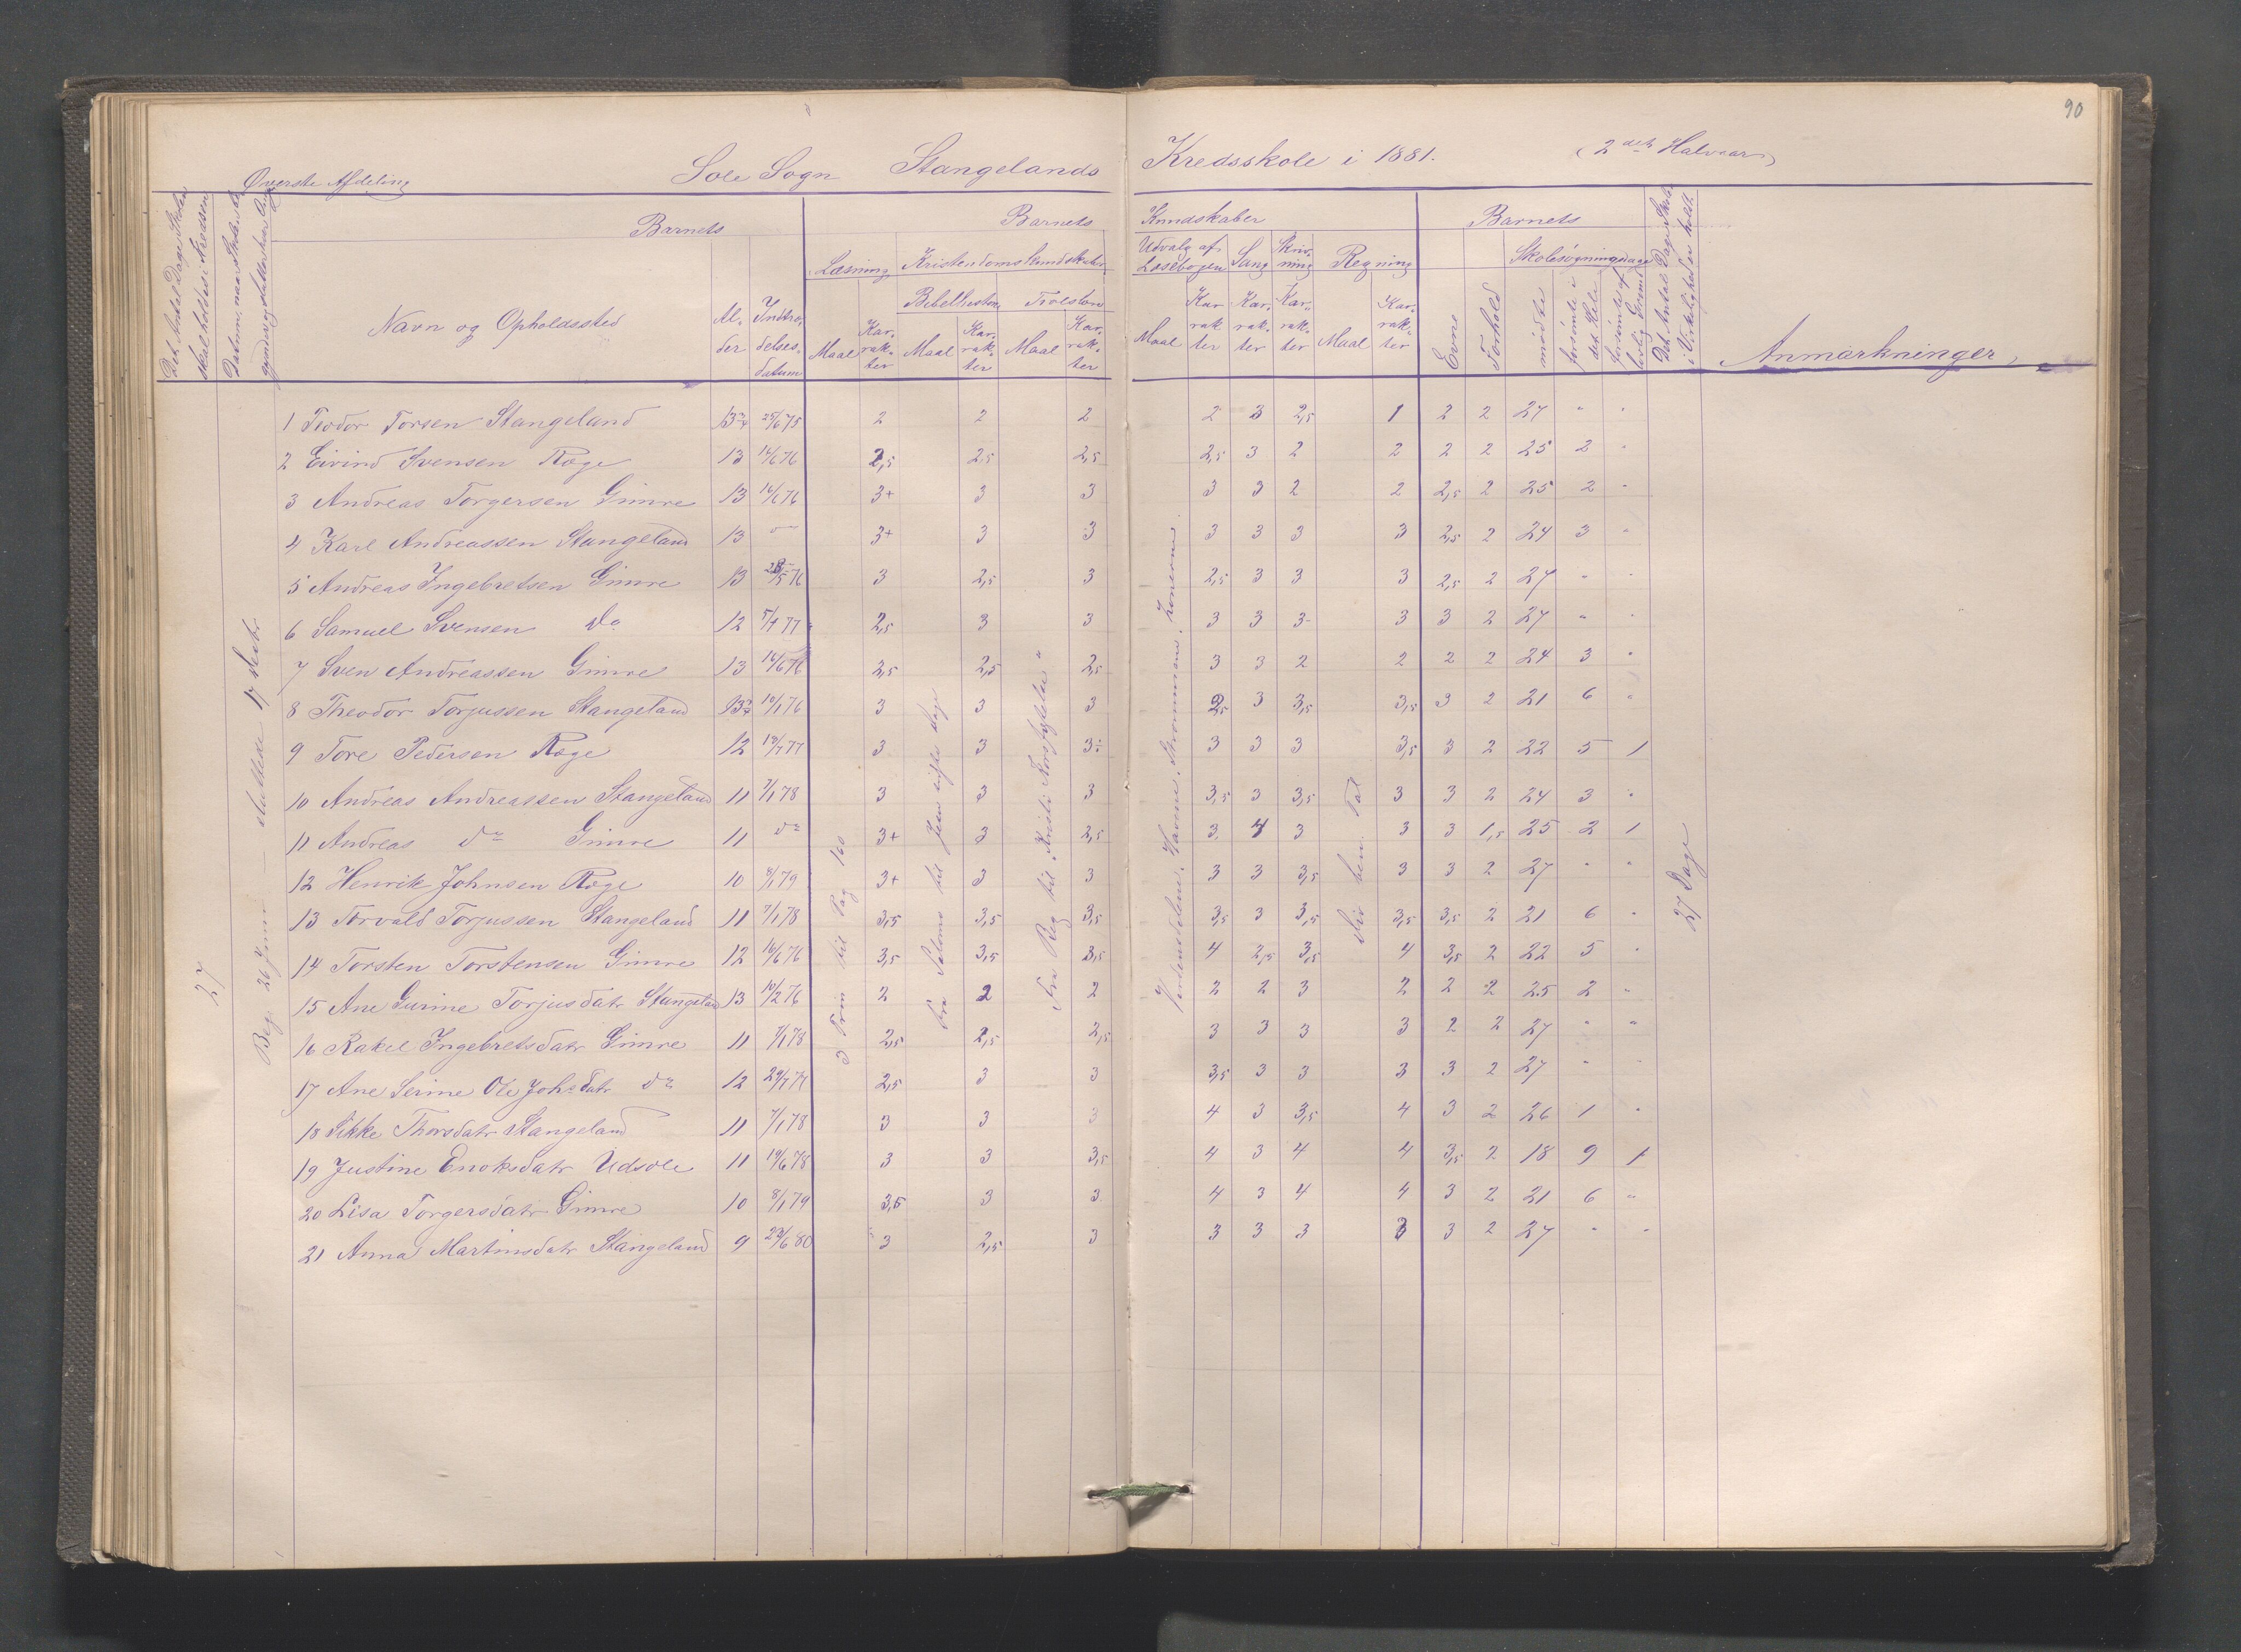 90
Øverste Afdeling Sole Sogn Stangelands Kredsskole i 1881. (2det Halvaar)
Det Antal Dage Skolen skal holdes i Kredsen
Barnets
Navn og Opholdssted
Al-der
Indtræ-delses-datum
Barnets Kundskaber
Læsning
Maal
Karrak-ter
Kristendomskundskab
Bibelhistorie
Maal
Karrak-ter
Troeslære
Maal
Karrak-ter
Udvalg af Læsebogen
Maal
Karrak-ter
Sang
Karrak-ter
Skriv-ning
Karrak-ter
Regning
Maal
Karrak-ter
Barnets
Evne
Forhold
Skolesøgningsdage
mødte
forsømte i det Hele
forsømte af lovlig Grund
Det Antal Dage Skolen i Virkeligheden holdt
Anmærkninger
27
Beg. 26 Juni – sluttede 17 Decbr
3 Trin til Pag 160
Fra Salomo til Jesu sidste dage
Fra Beg til "Kristi Korsfæstelse"
Verdensdelene, Havene, Strømmene, Zonerne.
Div ben Tal
27 Dage
1 Teodor Torsen Stangeland 13¾ 25/6 75 2 2 2 2 3 2,5 1 2 2 27 " "
2 Eivind Svensen Ræge 13 14/6 76 2,5 2,5 2,5 2,5 3 2 2 2 2 25 2 "
3 Andreas Torgersen Gimre 13 14/6 76 3+ 3 3 3 3 2 2 2,5 2 25 2 "
4 Karl Andreassen Stangeland 13 – 3+ 3 3 3 3 3 3 2,5 2 24 3 "
5 Andreas Ingebretsen Gimre 13 28/5 76 3 2,5 3 2,5 3 3 3 2,5 2 27 " "
6 Samuel Svensen do 12 5/4 77 2,5 3 3 3 3 3- 3 3 2 27 " "
7 Sven Andreassen Gimre 13 14/6 76 2,5 2,5 2,5 3 3 2 2 2 2 24 3 "
8 Theodor Torjussen Stangeland 13¾ 10/1 76 3 3 3 2,5 3 3,5 3,5 3 2 21 6 "
9 Tore Pedersen Ræge 12 13/7 77 3 3 3÷ 3 3 3 3,5 3 2 22 5 1
10 Andreas Andreassen Stangeland 11 7/1 78 3 3 3 3,5 3 3,5 3 3 2 24 3 "
11 Andreas do Gimre 11 do 3+ 3 2,5 3 4 3 3 3 1,5 25 2 1
12 Henrik Johnsen Ræge 10 8/1 79 3+ 3 3 3 3 3,5 3 3 2 27 " "
13 Torvald Torjussen Stangeland 11 7/1 78 3,5 3,5 3,5 3,5 3 3,5 3,5 3,5 2 21 6 "
14 Torsten Torstensen Gimre 12 16/6 76 3,5 3,5 3,5 4 2,5 3,5 4 3,5 2 22 5 "
15 Ane Gurine Torjusdatr Stangeland 13 10/2 76 2 2 2 2 2 3 2 2 2 25 2 "
16 Rakel Ingebretsdatr Gimre 11 7/1 78 2,5 2,5 2,5 3 3 3 3 2 2 27 " "
17 Ane Serine Ole Johsdatr do 12 29/1 77 2,5 3 3 3,5 3 3 3 3 2 27 " "
18 Sikke Thorsdatr Stangeland 11 7/1 78 3 3 3 4 3 3,5 4 3 2 26 1 "
19 Justine Enoksdatr Udsole 11 19/6 78 3 3 3,5 4 3 4 4 3,5 2 18 9 1
20 Lisa Torgersdatr Gimre 10 8/1 79 3,5 3 3 4 3 4 4 3 2 21 6 "
21 Anna Martinsdatr Stangeland 9 23/6 80 3 2,5 3 3 3 3 3 3 2 27 " "